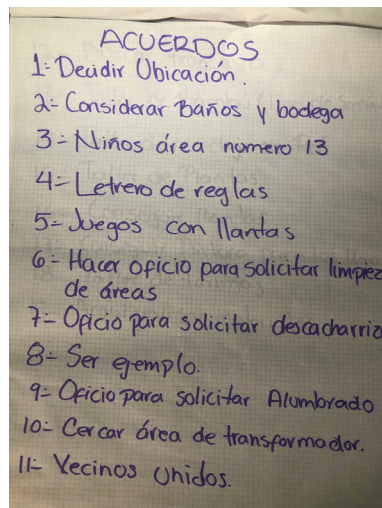 ACUERDOS
1- Decidir Ubicación.
2- Considerar Baños y bodega
3- Niños área numero 13
4- Letrero de reglas
5- Juegos con llantas
6- Hacer oficio para solicitar limpiez
de áreas
7- Oficio para solicitar descacharriz
8- Ser ejemplo.
9- Oficio para solicitar Alumbrado
10- Cercar área de transformador.
11- Vecinos Unidos.